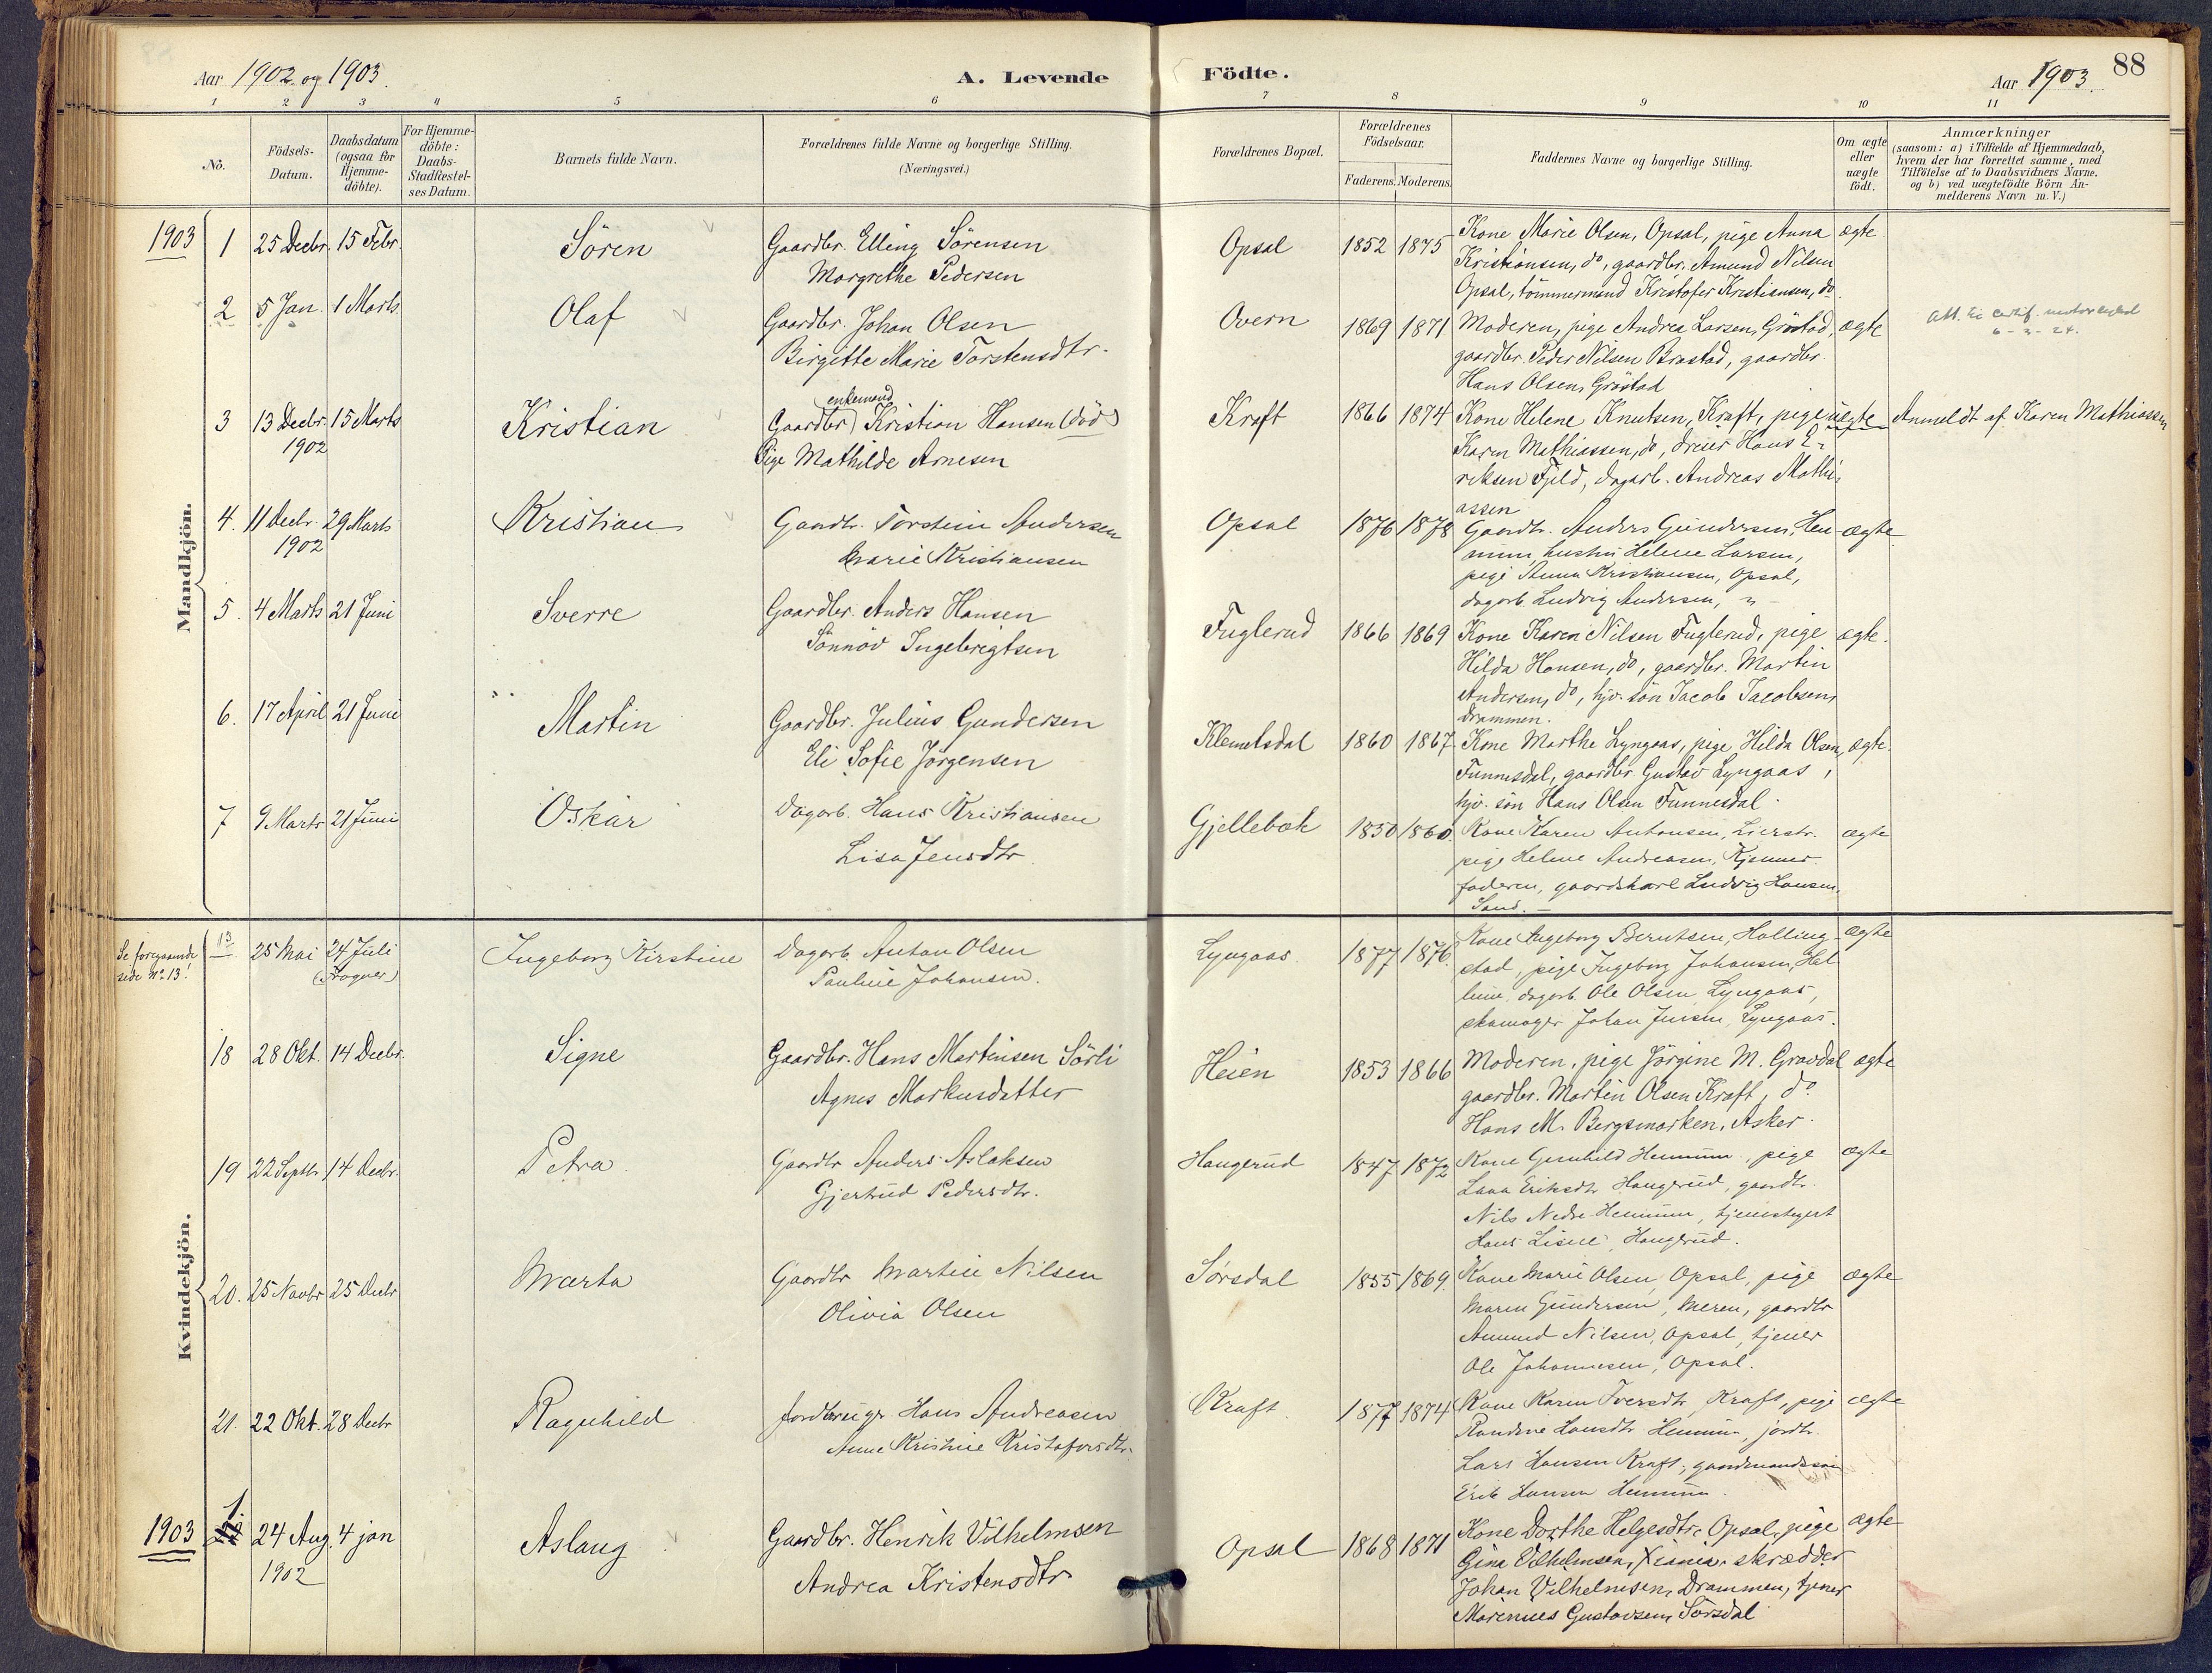 88
Aar 1902 og 1903.
A. Levende Födte.
Aar 1903.
1 2 3 4 5 6 7 8 9 10 11
No.
Födsels-Datum.
Daabsdatum (ogsaa for Hjemme-döbte).
For Hjemme-döbte: Daabs-Stadfæstel-ses Datum.
Barnets fulde Navn.
Forældrenes fulde Navne og borgerlige Stilling. (Næringsvei.)
Forældrenes Bopæl.
Forældrenes Födselsaar.
Faderens. Moderens.
Faddernes Navne og borgerlige Stilling.
Om ægte eller uægte födt.
Anmærkninger
(saasom: a) i Tilfælde af Hjemmedaab, hvem der har forrettet samme, med Tilföielse af to Daabsvidners Navne, og b) ved uægtefödte Börn An-melderens Navn m.V.)
Mandkjön.
1903 1 25 Decbr. 15 Febr. Sören
Gaardbr. Elling Sörensen
Margrethe Pedersen
Opsal 1852 1875
Kone Marie Olsen, Opsal, pige Anna
Kristiansen, do, gaardbr. Amund Nilsen
Opsal, tömmermand Kristofer Kristiansen, do.
ægte
2 5 Jan. 1 Marts Olaf
Gaardbr. Johan Olsen
Birgitte Marie Torstensdtr.
Overn 1869 1871
Moderen, pige Andrea Larsen, Gröstad,
gaardbr. Peder Nilsen Brastad, gaardbr.
Hans Olsen, Gröstad
ægte
3 13 Decbr. 1902 15 Marts Kristian
enkemand
Gaardbr. Kristian Hansen (död)
Pige Mathilde Arnesen
Kraft 1866 1874
Kone Helene Knutsen, Kraft, pige
Karen Mathiassen, do, dreier Hans E-
riksen Fjeld, dagarb. Andreas Mathi-
assen
uægte
Anmeldt af Karen Mathiassen
4. 11 Decbr. 1902 29 Marts Kristian
Gaardbr. Torstein Andersen
Marie Kristiansen
Opsal 1876 1878
Gaardbr. Anders Gundersen, Hen-
num, hustru Helene Larsen,
pige Anna Kristiansen, Opsal,
dagarb. Ludvig Andersen, "-
ægte
5. 4 Marts 21 Juni Sverre
Gaardbr. Anders Hansen
Sönnöv Ingebrigtsen
Fuglerud 1866 1869
Kone Karen Nilsen Fuglerud, pige
Hilda Hansen, do, gaardbr. Martin
Andersen, do, hjv. sön Jacob Jacobsen,
Drammen.
ægte.
6. 17 April 21 Juni Martin
Gaardbr. Julius Gundersen
Eli Sofie Jörgensen
Klemetsdal 1860 1867
Kone Marthe Lyngaas, pige Hilda Olsen,
Tunnesdal, gaardbr. Gustav Lyngaas,
hjv. sön Hans Olsen Tunnesdal.
ægte.
7 9 Marts 21 Juni Oskar
Dagarb. Hans Kristiansen
Lisa Jensdtr.
Gjellebæk 1850 1860.
Kone Karen Antonsen, Lierstr.
pige Helene Andreasen, Kjenner
faderen, gaardskarl Ludvig Hansen,
Sand.
ægte
Kvindekjön.
Se foregaaende side No 13!
13 25 Mai 24 Juli (Frogner) Ingeborg Kirstine
Dagarb. Anton Olsen
Pauline Johansen.
Lyngaas. 1877 1876.
Kone Ingeborg Berntsen, Halling-
stad, pige Ingeborg Johansen,
dagarb. Ole Olsen Lyngaas,
skomager Johan Jensen, Lyngaas.
ægte
18 28 Okt. 14 Decbr. Signe
Gaardbr. Hans Martinsen Sörli
Agnes Markusdatter
Heien 1853 1866
Moderen, pige Jörgine M. Gravdal
gaardbr. Martin Olsen Kraft, do.
Hans M. Bergsmarken, Asker.
ægte
19 22 Septbr. 14 Decbr. Petra
Gaardbr Anders Aslaksen
Gjertrud Pedersdtr.
Haugerud 1847 1872
Kone Gunhild Hennum, pige
Lava Eriksdtr Haugerud, gaardbr.
Nils Nedre Hennum, tjenestegut
Hans Lisene, Haugerud.
ægte
20. 25 Novbr 25 Decbr Marta
Gaardbr Martin Nilsen
Olivia Olsen
Sörsdal 1855 1869.
Kone Marie Olsen, Opsal, pige
Maren Gundersen, Meren, gaardbr
Amund Nilsen, Opsal, tjener
Ole Johannesen, Opsal.
ægte
21. 22 Okt. 28 Decbr Ragnhild
Jordbruger Hans Andreasen
Anne Kristine Kristofersdtr.
Kraft. 1877 1874
Kone Karen Iversdtr, Kraft, pige
Randine Hansdtr Hennum, jordbr.
Lars Hansen Kraft, gaardmandssön
Erik Hansen Hennum.
ægte
1903 1 24 Aug. 1902 4 jan Aslaug
Gaardbr. Henrik Vilhelmsen
Andrea Kristensdtr
Opsal 1868 1871
Kone Dorthe Helgesdtr. Opsal, pige
Gina Vilhelmsen, Xiania. skrædder
Johan Vilhelmsen, Drammen, tjener
Marinius Gustavsen, Sörsdal
ægte